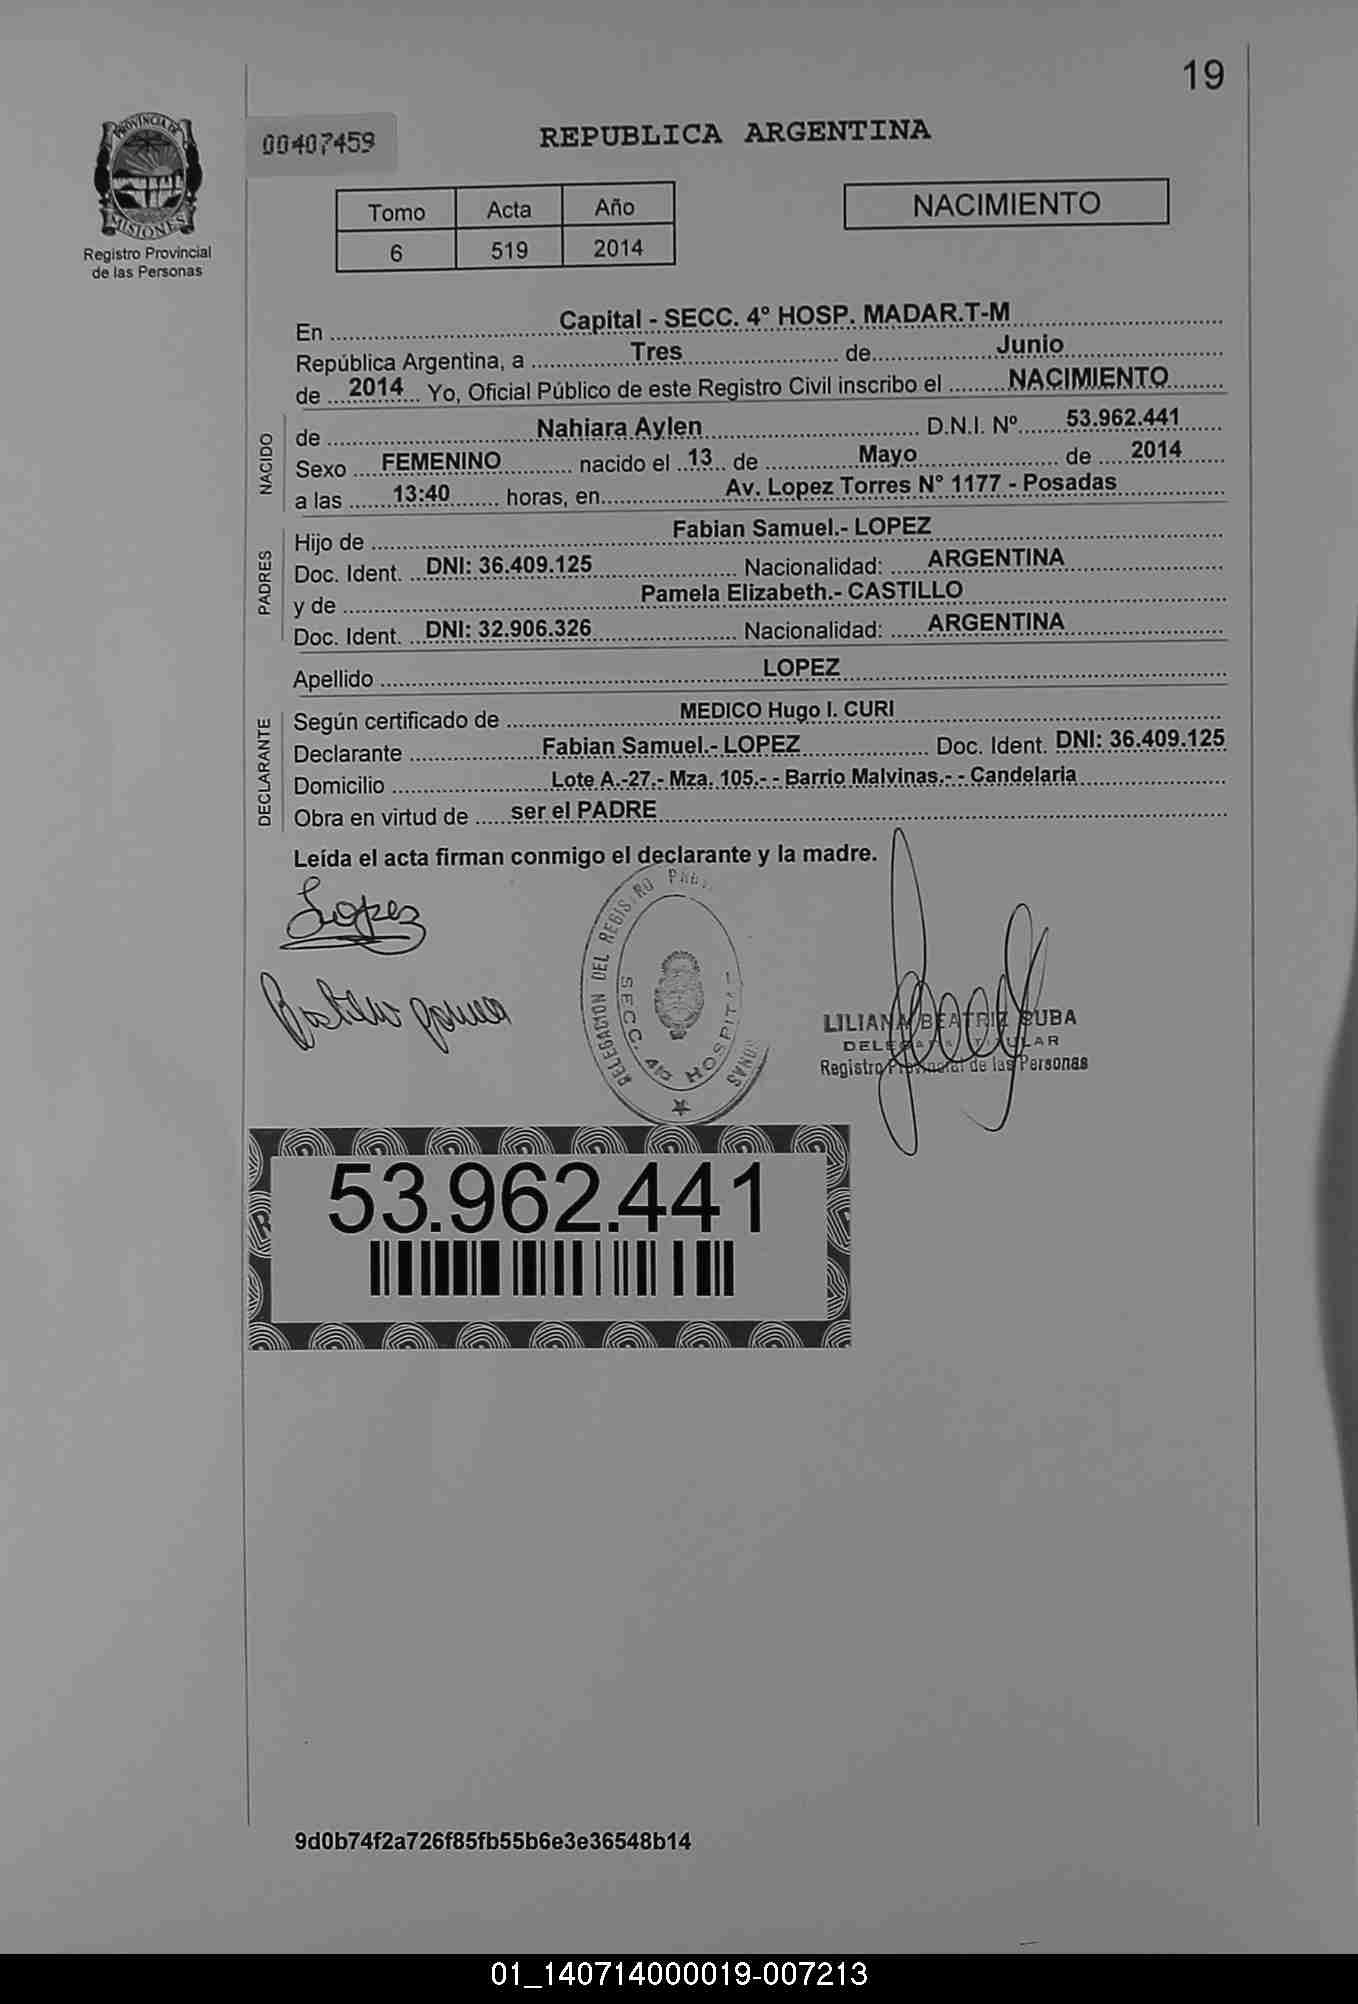 19
PROVINCIA DE
MISIONES
Registro Provincial
de las Personas
00407459
REPUBLICA ARGENTINA
Tomo Acta Año
6 519 2014
NACIMIENTO
En Capital - SECC. 4° HOSP. MADAR.T-M
República Argentina, a Tres de Junio
de 2014 Yo, Oficial Público de este Registro Civil inscribo el NACIMIENTO
NACIDO
de Nahiara Aylen D.N.I. Nº 53.962.441
Sexo FEMENINO nacido el 13 de Mayo de 2014
a las 13:40 horas, en Av. Lopez Torres N° 1177 - Posadas
PADRES
Hijo de Fabian Samuel.- LOPEZ
Doc. Ident. DNI: 36.409.125 Nacionalidad: ARGENTINA
y de Pamela Elizabeth.- CASTILLO
Doc. Ident. DNI: 32.906.326 Nacionalidad: ARGENTINA
Apellido LOPEZ
DECLARANTE
Según certificado de MEDICO Hugo I. CURI
Declarante Fabian Samuel.- LOPEZ Doc. Ident. DNI: 36.409.125
Domicilio Lote A.-27.- Mza. 105.- - Barrio Malvinas.- - Candelaria
Obra en virtud de ser el PADRE
Leída el acta firman conmigo el declarante y la madre.
Lopez
DELEGACION DEL REGISTRO
SECC. 4ta HOSPITAL
LILIANA BEATRIZ SUBA
DELEGADA TITULAR
Registro Provincial de las Personas
53.962.441
9d0b74f2a726f85fb55b6e3e36548b14
01_140714000019-007213